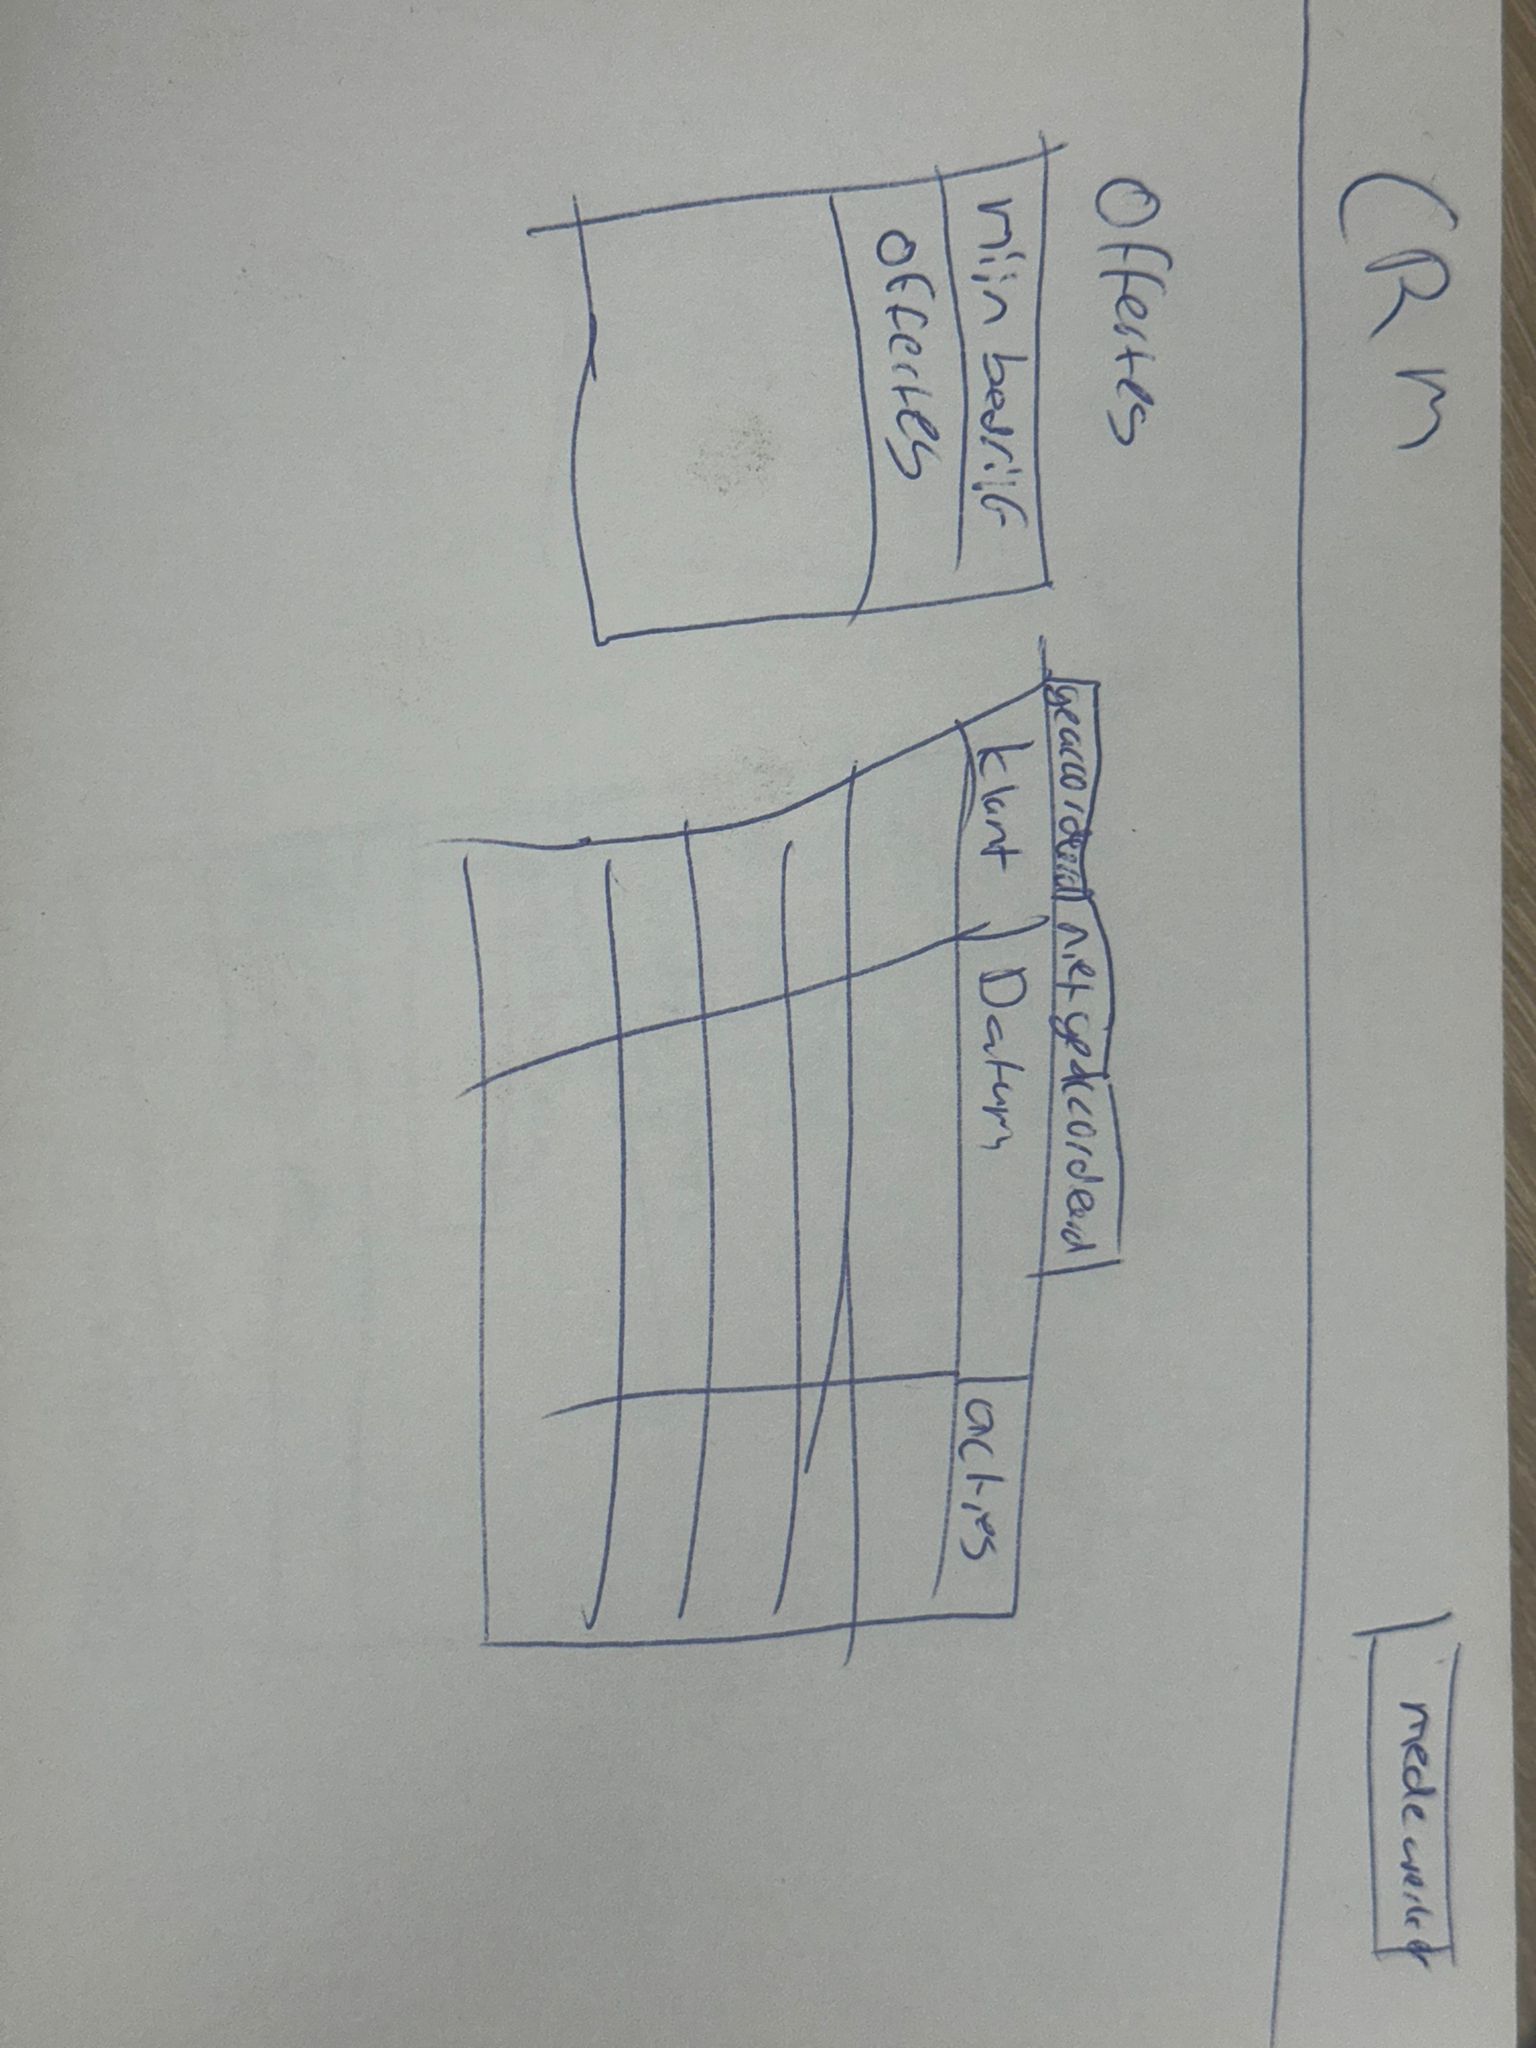 CRM
medewerker
Offertes
mijn bedrijf
offertes
geaccordeerd niet geaccordeerd
klant Datum acties